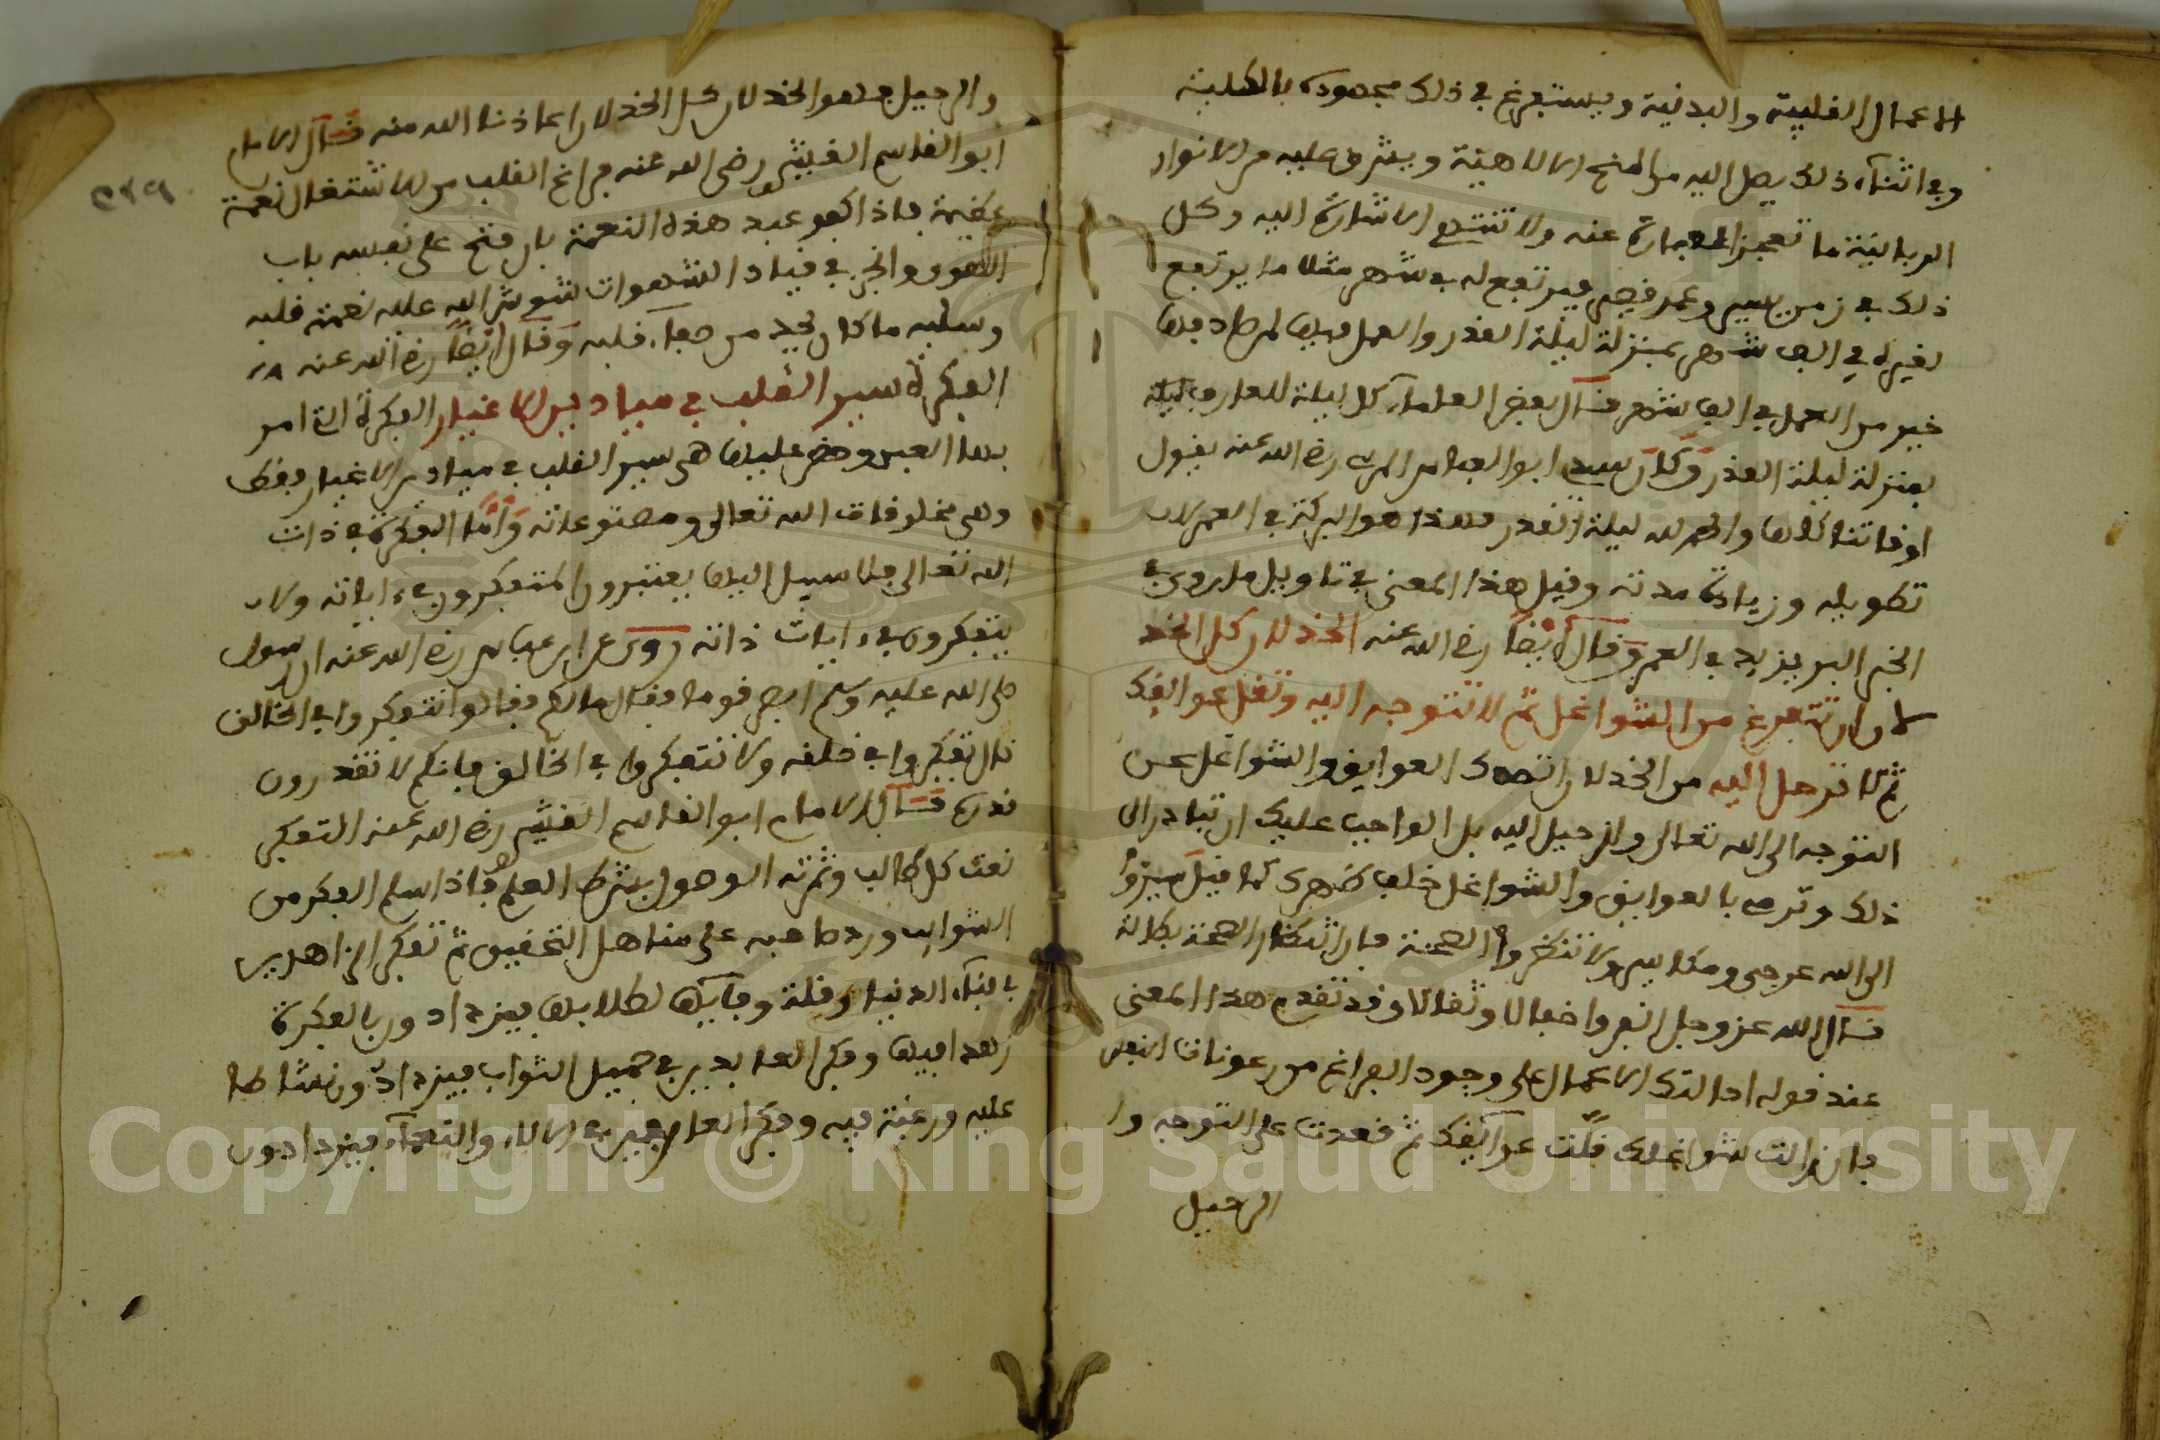 الاعمال القلبية والبدنية ويستفرغ في ذلك مجهوده بالكلية
وفي اثناء ذلك يصل اليه من المنح الالاهية ويشرق عليه من الانوار
الربانية ما تعجز العبارة عنه ولا تنتهي الاشارة اليه وكل
ذلك في زمن يسير وعمر قصير فيرتفع له في شهر مثلا ما يرتفع
لغيره في الف شهر بمنزلة ليلة القدر والعمل فيها لمن صادفها
خير من العمل في الف شهر قال بعض العلماء كل ليلة للعارف ليلة
بمنزلة ليلة القدر وكان سيدي ابو العباس المرسي رضي الله عنه يقول
اوقاتنا كلها والحمد لله ليلة القدر فهذا هو البركة في العمر لا
تطويله وزيادة مدته وقيل هذا المعنى في تاويل ما روي في
الخبر البر يزيد في العمر وقال ايضا رضي الله عنه الخذلان كل الخذ
لان ان تتفرغ من الشواغل ثم لا تتوجه اليه وتقل عوائقك
ثم لا ترحل اليه من الخذلان تصدك العوايق والشواغل عن
التوجه الى الله تعالى والرحيل اليه بل الواجب عليك ان تبادر الى
ذلك وترمي بالعوايق والشواغل خلف ظهرك كما قيل سيروا
الى الله عرجى ومكاسير ولا تنتظروا الصحة فان انتظار الصحة بطالة
قال الله عز وجل انفروا خفافا وثقالا وقد تقدم هذا المعنى
عند قوله احالتك الاعمال على وجود الفراغ من رعونات النفس
فان زالت شواغلك وقلت عوائقك ثم قعدت على التوجه وا
الرحيل
والرحيل فهو الخذلان كل الخذلان اعاذنا الله منه قال الامام
ابو القاسم القشيري رضي الله عنه فراغ القلب من الاشتغال نعمة
عظيمة فاذا كفر عبد هذه النعمة بان فتح على نفسه باب
الهوى وانجر في قياد الشهوات شوش الله عليه نعمة قلبه
وسلبه ما كان يجد من صفاء قلبه وقال ايضا رضي الله عنه
الفكرة سير القلب في ميادين الاغيار الفكرة التي امر
بها العبد وحض عليها هي سير القلب في ميادين الاغيار فقط
وهي مخلوقات الله تعالى ومصنوعاته واما الفكرة في ذات
الله تعالى فلا سبيل اليها يعتبرون المتفكرون في اياته ولا
يتفكرون في ذاته روي عن ابن عباس رضي الله عنه ان رسول
صلى الله عليه وسلم ابصر قوما فقال ما لكم فقالوا نتفكر في الخالق
قال تفكروا في خلقه ولا تتفكروا في الخالق فانكم لا تقدرون
قدره قال الامام ابو القاسم القشيري رضي الله عنه التفكر
نعت كل طالب وثمرته الوصول بشرط العلم فاذا سلم الفكر من
الشوائب ورد صاحبه على مناهل التحقيق ثم تفكر الزاهدين
في فناء الدنيا وقلة وفائها لطلابها فيزدادون بالفكرة
زهدا فيها وفكر العابدين في جميل الثواب فيزدادون نشاطا
عليه ورغبة فيه وفكر العارفين في الالاء والنعماء فيزدادون